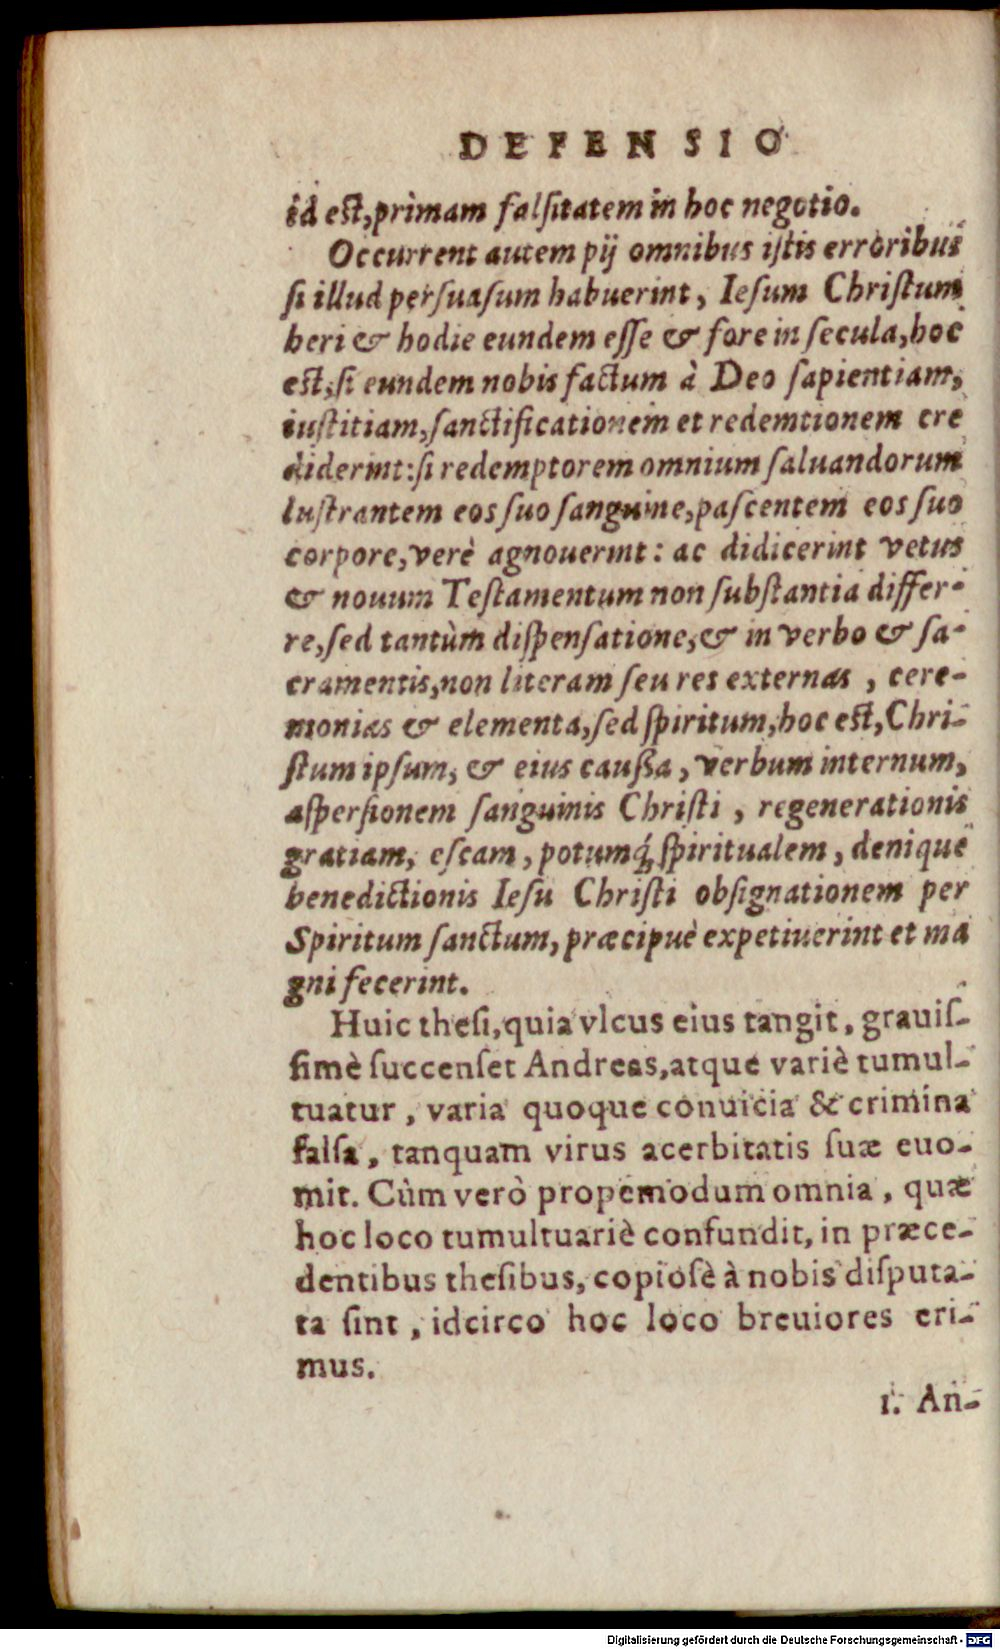 DEFENSIO
id est, primam falsitatem in hoc negotio.
Occurrent autem pij omnibus istis erroribus
si illud persuasum habuerint, Iesum Christum
heri & hodie eundem esse & fore in secula, hoc
est, si eundem nobis factum à Deo sapientiam,
iustitiam, sanctificationem et redemtionem cre
diderint: si redemptorem omnium saluandorum
lustrantem eos suo sanguine, pascentem eos suo
corpore, verè agnouerint: ac didicerint vetus
& nouum Testamentum non substantia differ-
re, sed tantùm dispensatione, & in verbo & sa-
cramentis, non literam seu res externas, cere-
monias & elementa, sed spiritum, hoc est, Chri-
stum ipsum, & eius caussa, verbum internum,
aspersionem sanguinis Christi, regenerationis
gratiam, escam, potumq́; spiritualem, denique
benedictionis Iesu Christi obsignationem per
Spiritum sanctum, præcipuè expetiuerint et ma
gni fecerint.
Huic thesi, quia vlcus eius tangit, grauis-
simè succenset Andreas, atque variè tumul-
tuatur, varia quoque conuicia & crimina
falsa, tanquam virus acerbitatis suæ euo-
mit. Cùm verò propemodum omnia, quæ
hoc loco tumultuariè confundit, in præce-
dentibus thesibus, copiosè à nobis disputa-
ta sint, idcirco hoc loco breuiores eri-
mus.
1. An-
Digitalisierung gefördert durch die Deutsche Forschungsgemeinschaft - DFG